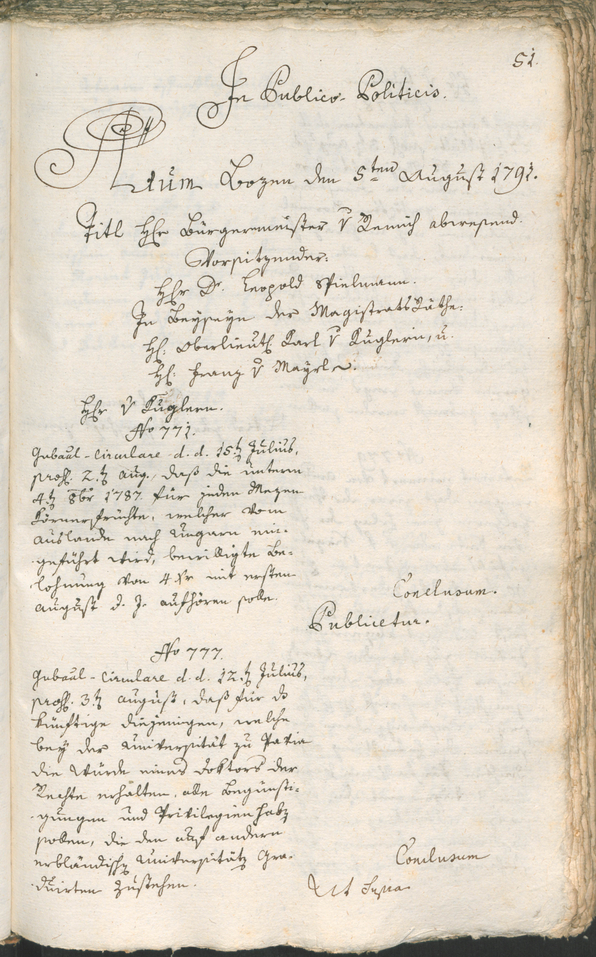 51.
In Publico-Politicis.
Actum Bozen den 5ten August 1791.
Titl Hhr Bürgermeister v Remich abwesend.
Vorsitzender:
Hhr Dr. Leopold Spielmann.
In Beyseyn der Magistrats Räthe:
Hh. Oberlieut. Karl v Kuglern, u.
Hh. Franz v Mayrl.
Hhr v Kuglern.
No 771.
Gubaul-Circulare d. d. 15t Julius,
präs. 2t Aug., daß die unterm
4t 8br 1787 für jeden Mezen
Körnerfrüchte, welcher vom
Auslande nach Ungarn ein-
geführt wird, bewilligte Be-
lohnung von 4 Xr mit ersten
August d. J. aufhören solle.
Conclusum.
Publicetur.
No 777.
Gubaul-Circulare d. d. 12t Julius,
präs. 3t August, daß für das
künftige diejenigen, welche
bey der Universität zu Pavia
die Würde eines Doktors der
Rechte erhalten, alle Begünsti-
gungen und Privilegien haben
sollen, die den auf andern
erbländisch Universitäten Gra-
duirten zustehen.
Conclusum
Ut Supra